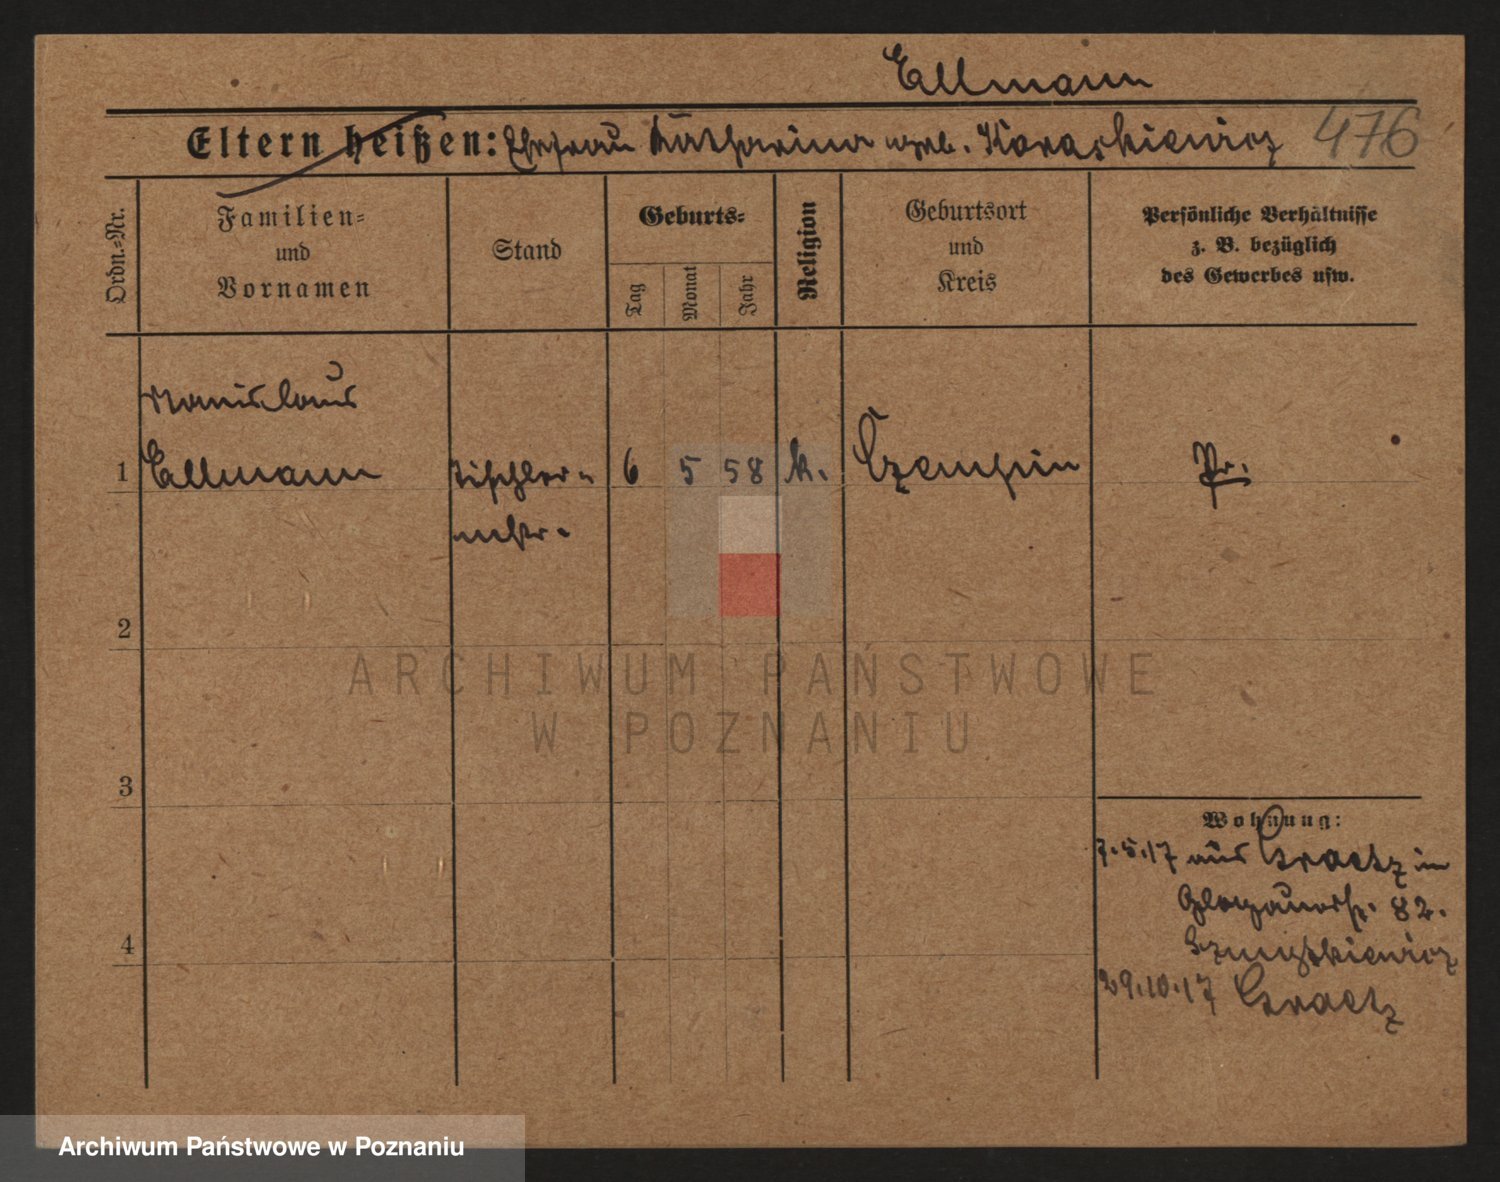 Ellmann
Eltern heißen: Ehefrau Katharina geb. Koraskiewicz 476
Ordn.=Nr.
Familien=
und
Vornamen
Stand
Geburts=
Tag
Monat
Jahr
Religion
Geburtsort
und
Kreis
Persönliche Verhältnisse
z. B. bezüglich
des Gewerbes usw.
Stanislaus
1 Ellmann Tischler= 6 5 58 k. Czempin Pr.
mstr.
2
3
4
Wohnung:
7.5.17 aus Graetz in
Glogauerstr. 82.
29.10.17 Graetz
ARCHIWUM PAŃSTWOWE
W POZNANIU
Archiwum Państwowe w Poznaniu